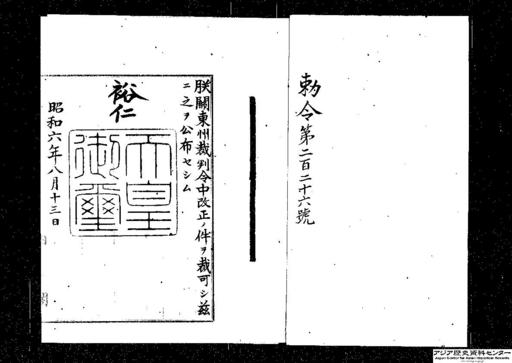 勅令第二百二十六號
朕關東州裁判令中改正ノ件ヲ裁可シ茲
ニ之ヲ公布セシム
裕仁
天皇
御璽
昭和六年八月十三日
内閣
アジア歴史資料センター
Japan Center for Asian Historical Records